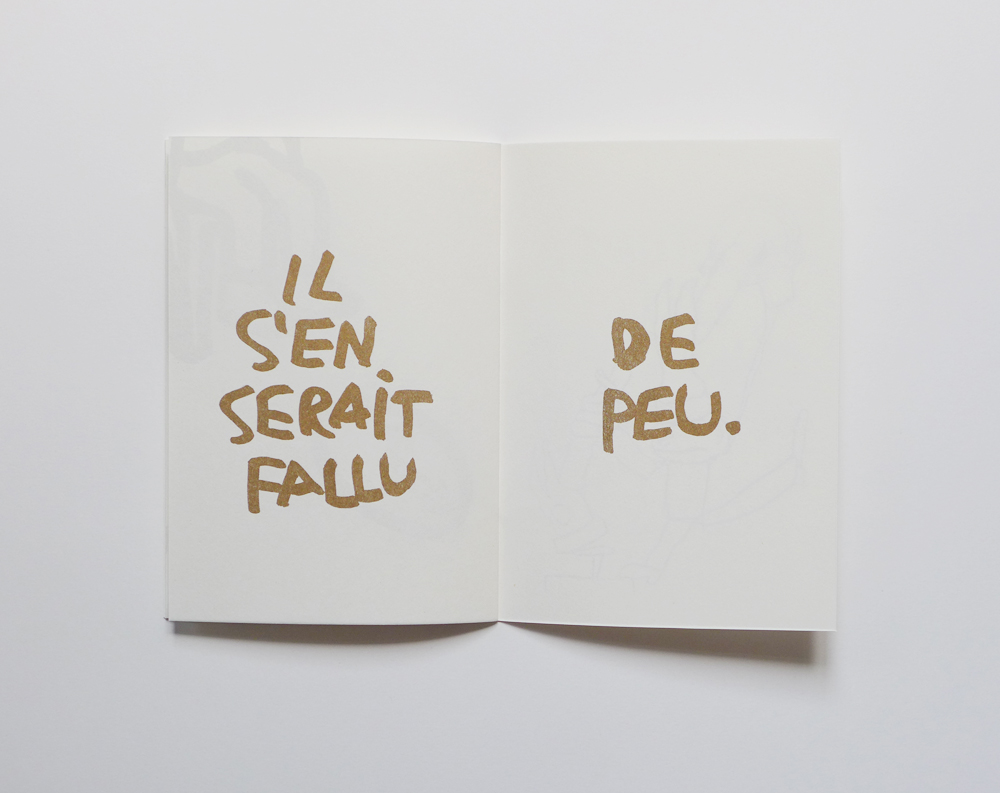 IL
S'EN
SERAIT
FALLU
DE
PEU.